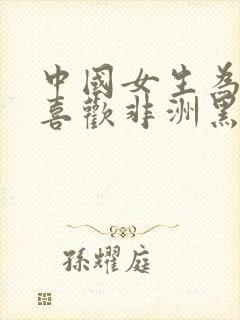 中國女生為
喜歡非洲黑
孫耀庭